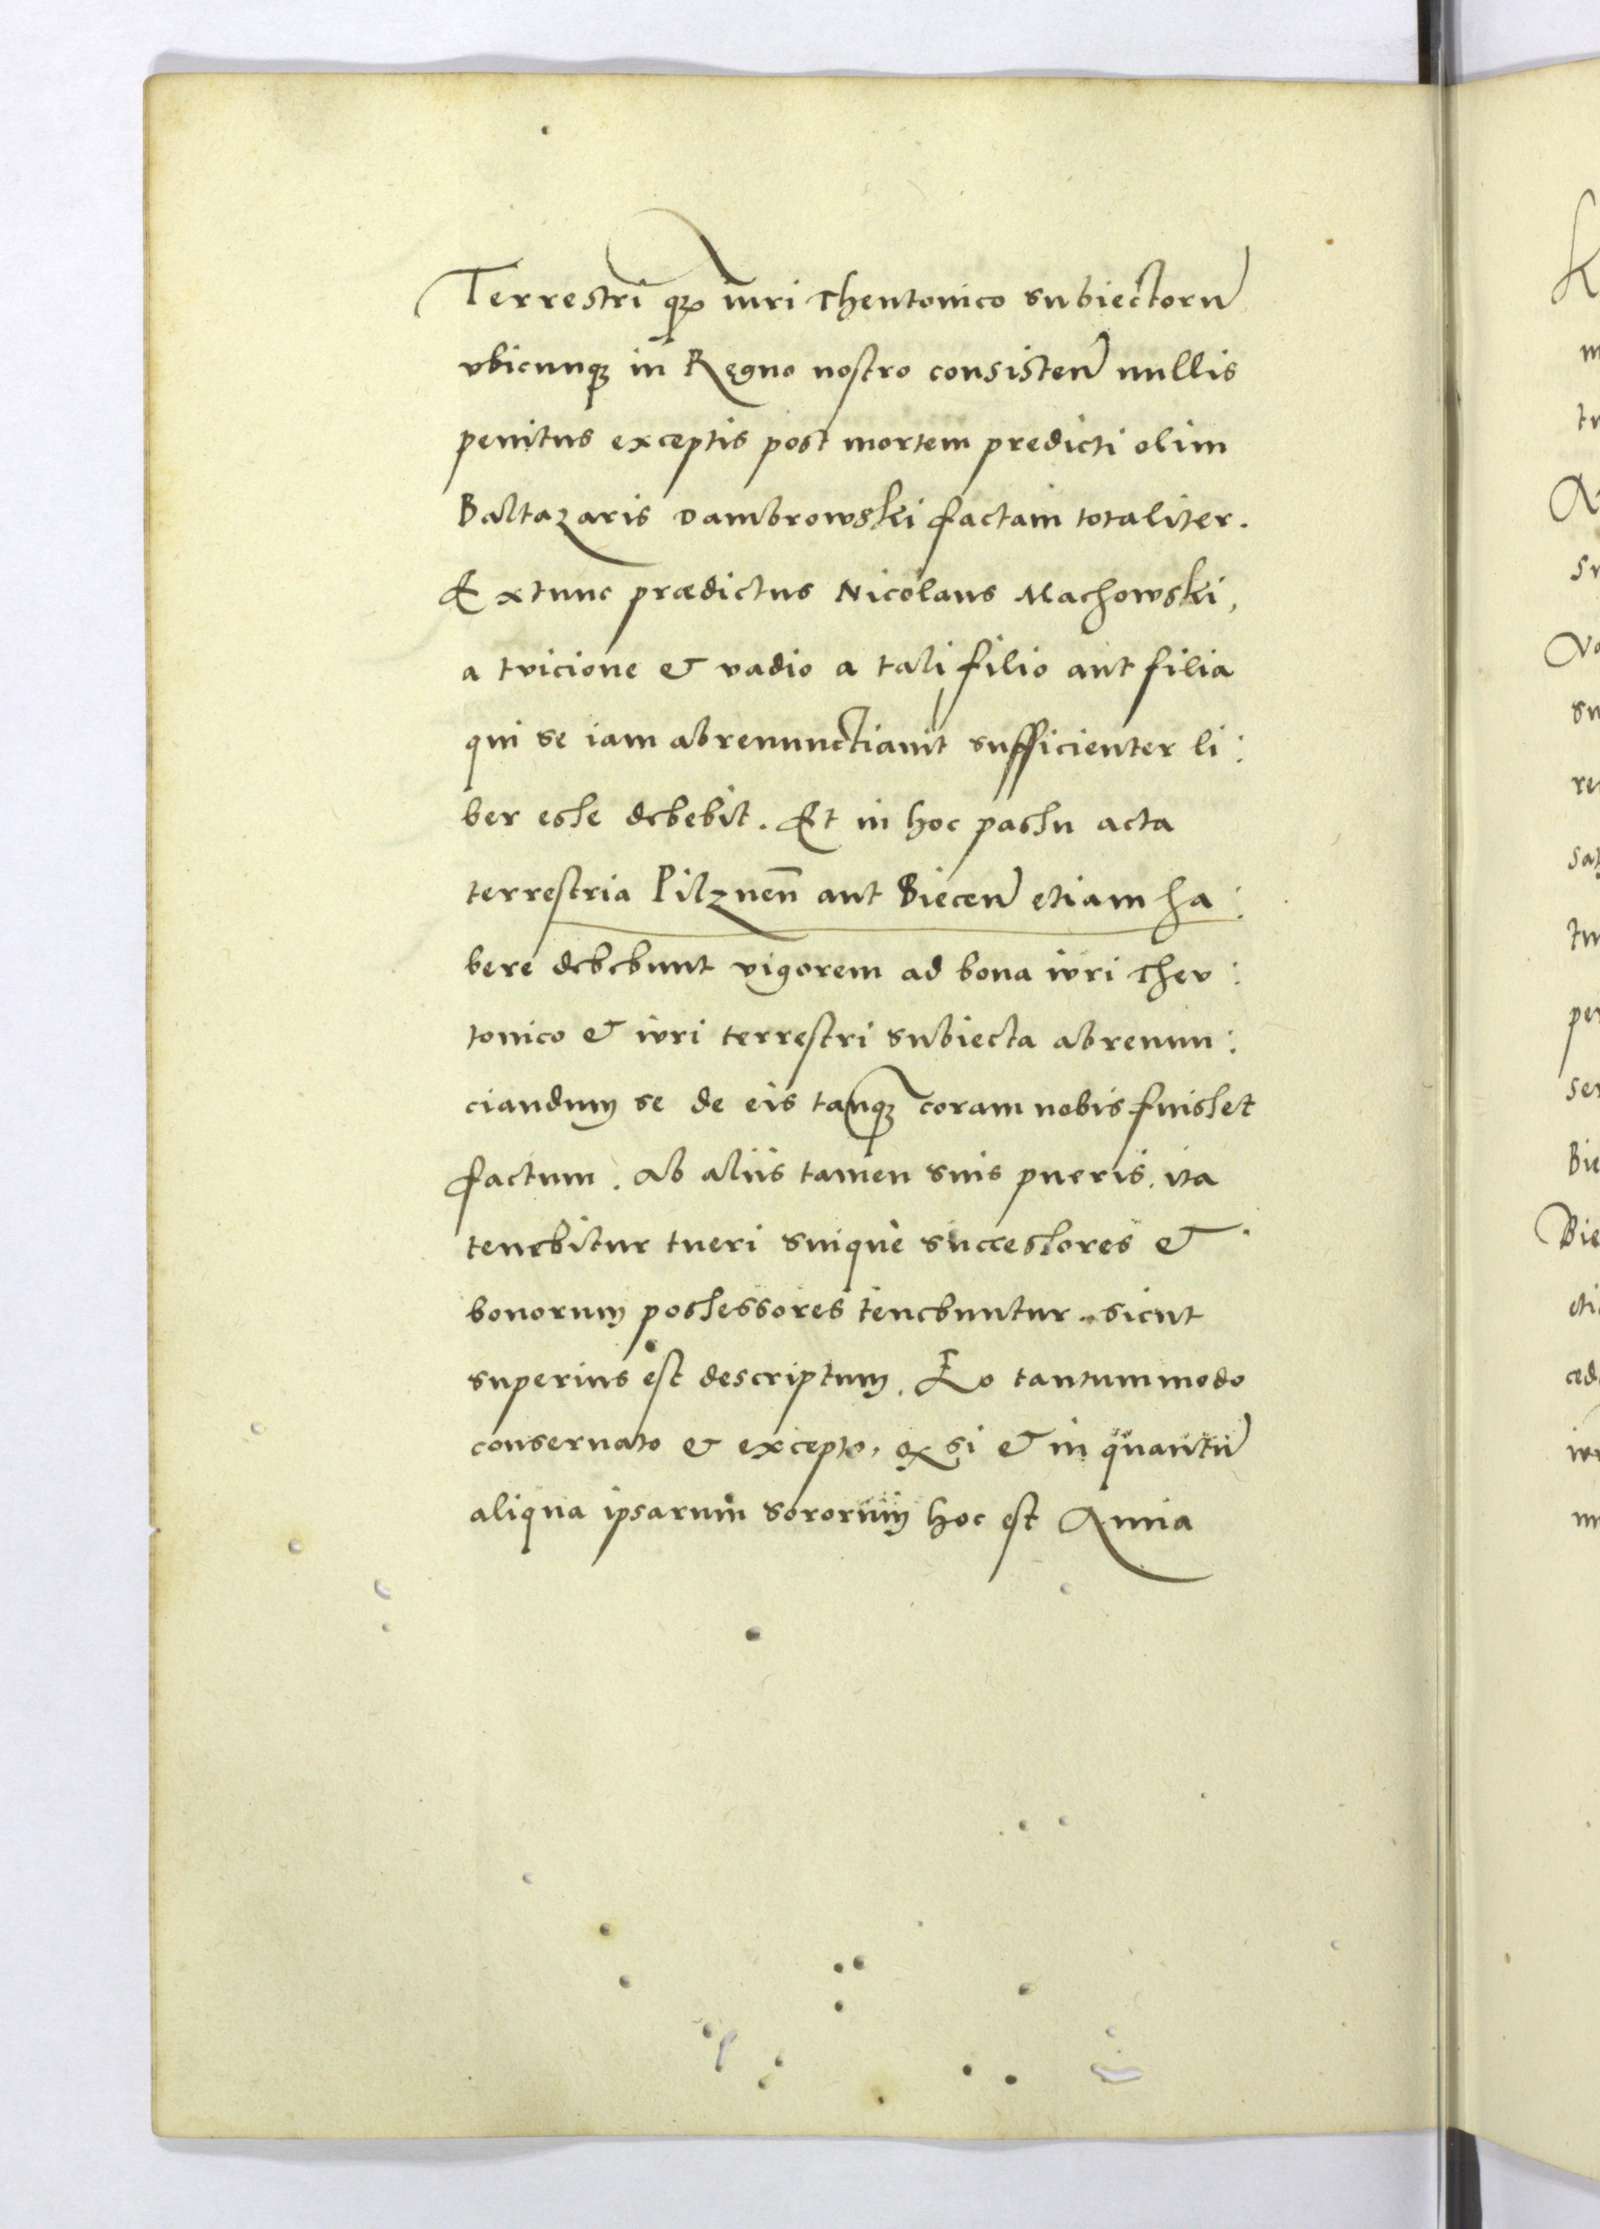 Terrestri qꝫ iuri Thentonico subiectorū
vbicunqꝫ in Regno nostro consisteñ nullis
penitus exceptis post mortem predicti olim
Baltazaris Dambrowski factam totaliter.
Extunc prædictus Nicolaus Machowski,
a tuicione & vadio a tali filio aut filia
qui se iam abrenunctiauit sufficienter li:
ber esse debebit. Et in hoc passu acta
terrestria Pilzneñ aut Bieceñ etiam ha:
bere debebunt vigorem ad bona iuri Theu:
tonico & iuri terrestri subiecta abrenun:
ciandum se de eis tanqꝫ coram nobis fuisset
factum. Ab aliis tamen suis pueris. ita
tenebitur tueri suique successores &
bonorum possessores tenebuntur. sicut
superius est descriptum. Eo tantummodo
conseruato & excepto, si & in quantū
aliqua ipsarum sororum hoc est Anna